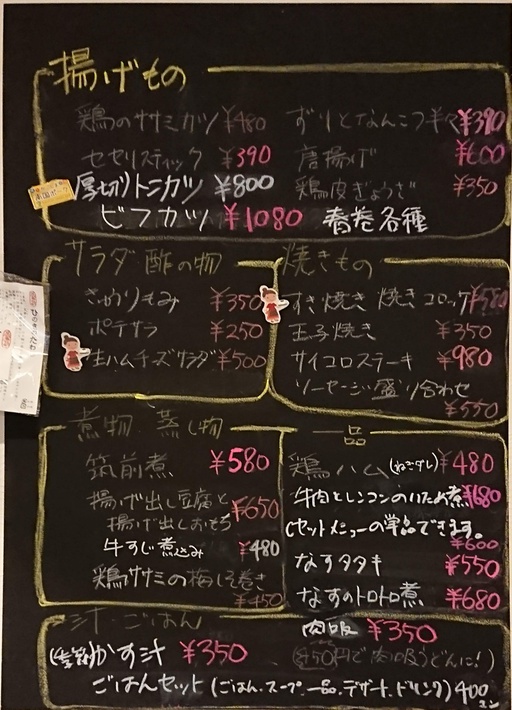 揚げもの
鶏のササミカツ ¥480
ずりとなんこつ半々 ¥390
セセリスティック ¥390
唐揚げ ¥600
厚切りトンカツ ¥800
鶏皮ぎょうざ ¥350
ビフカツ ¥1080
春巻各種
サラダ 酢の物
きゅうりもみ ¥350
ポテサラ ¥250
生ハムチーズサラダ ¥500
焼きもの
すき焼き 焼きコロッケ ¥550
玉子焼き ¥350
サイコロステーキ ¥980
ソーセージ盛り合わせ
¥550
煮物 蒸し物
筑前煮 ¥580
揚げ出し豆腐と
揚げ出しおもち ¥650
牛すじ煮込み ¥480
鶏ササミの梅しそ巻き
¥450
一品
鶏ハム(ねぎダレ) ¥480
牛肉とレンコンのいため煮 ¥680
(セットメニューの単品できます。
¥600
なすタタキ ¥550
なすのトロトロ煮 ¥680
肉吸 ¥350
(+50円で肉吸うどんに!)
汁・ごはん
かす汁 ¥350
ごはんセット(ごはん・スープ・一品・デザート・ドリンク) 400
エン